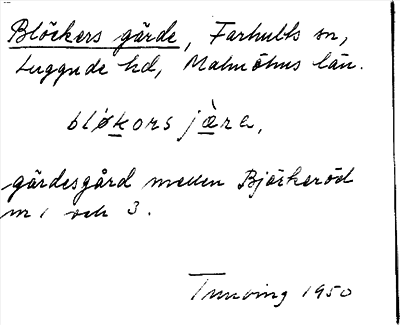 Blöckers gärde, Farhults sn,
Luggude hd, Malmöhus län.
bløkors jæra,
gärdesgård mellan Bjäckeröd
nr 1 och 3.
Tunving 1950